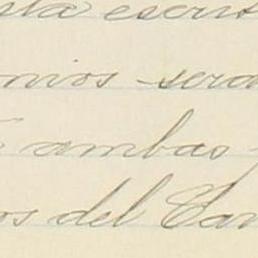 esta escrit
onios será
ambas
os del Can